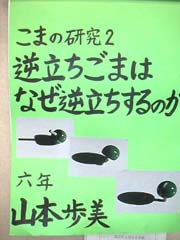 こまの研究2
逆立ちごまは
なぜ逆立ちするのか
六年
山本歩美